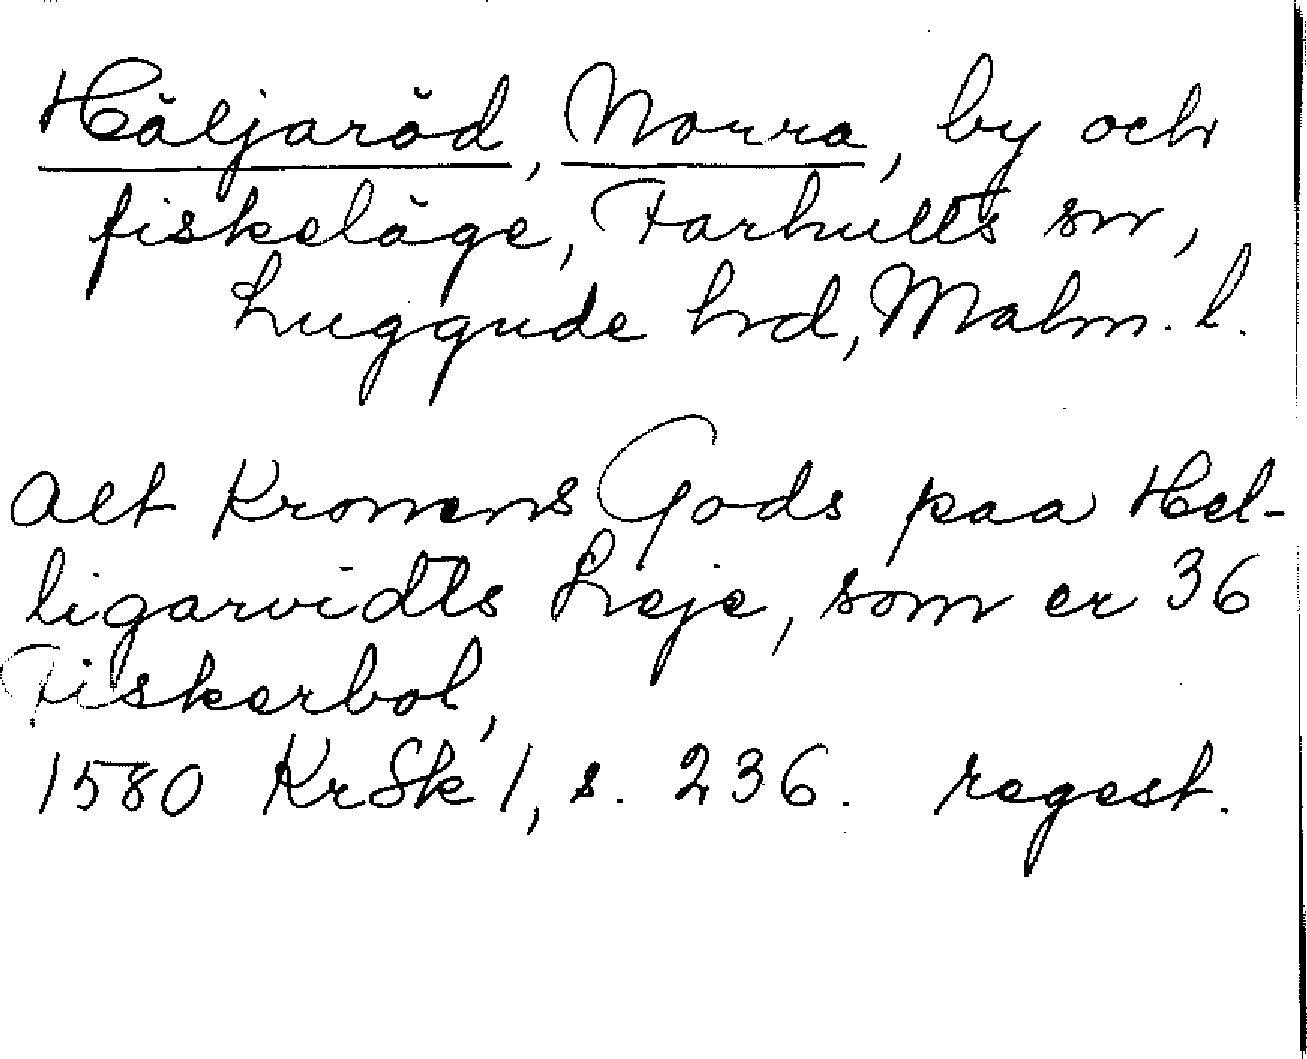 Häljaröd, Norra, by och
fiskeläge, Farhults sn,
Luggude hrd, Malm. l.
Alt Kronens Gods paa Hel-
ligarvidts Leje, som er 36
Fiskerbol,
1580 KrSk 1, s. 236. regest.